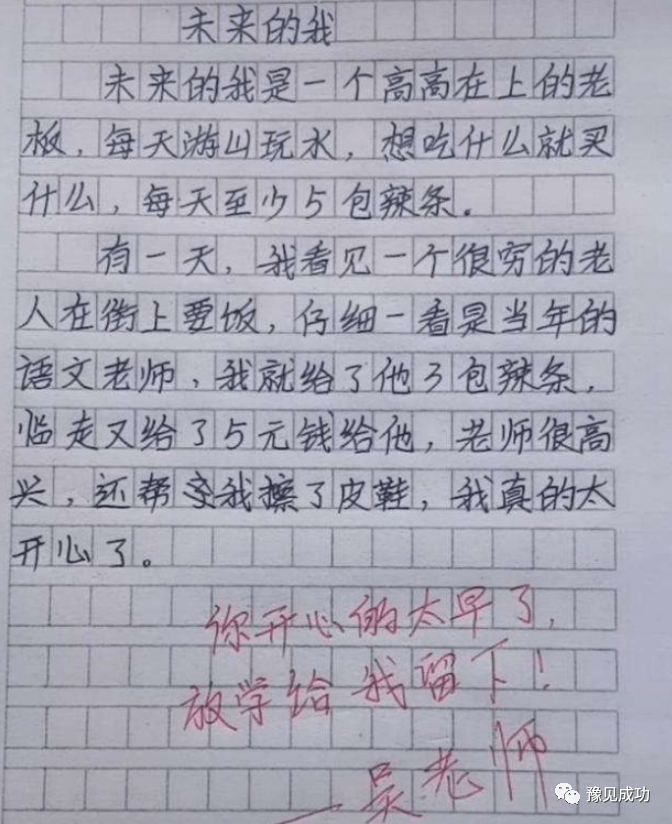 未来的我
未来的我是一个高高在上的老
板，每天游山玩水，想吃什么就买
什么，每天至少5包辣条。
有一天，我看见一个很穷的老
人在街上要饭，仔细一看是当年的
语文老师，我就给了他3包辣条，
临走又给了5元钱给他，老师很高
兴，还帮我擦了皮鞋，我真的太
开心了。
你开心的太早了，
放学给我留下！
—吴老师
豫见成功